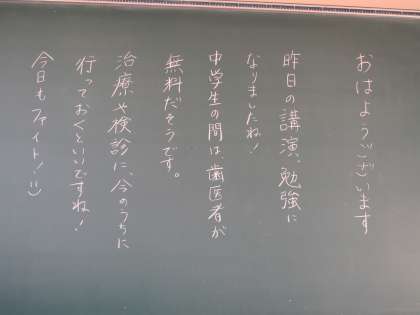 おはようございます
昨日の講演、勉強に
なりましたね！
中学生の間は、歯医者が
無料だそうです。
治療や検診に、今のうちに
行っておくといいですね！
今日もファイト！:)